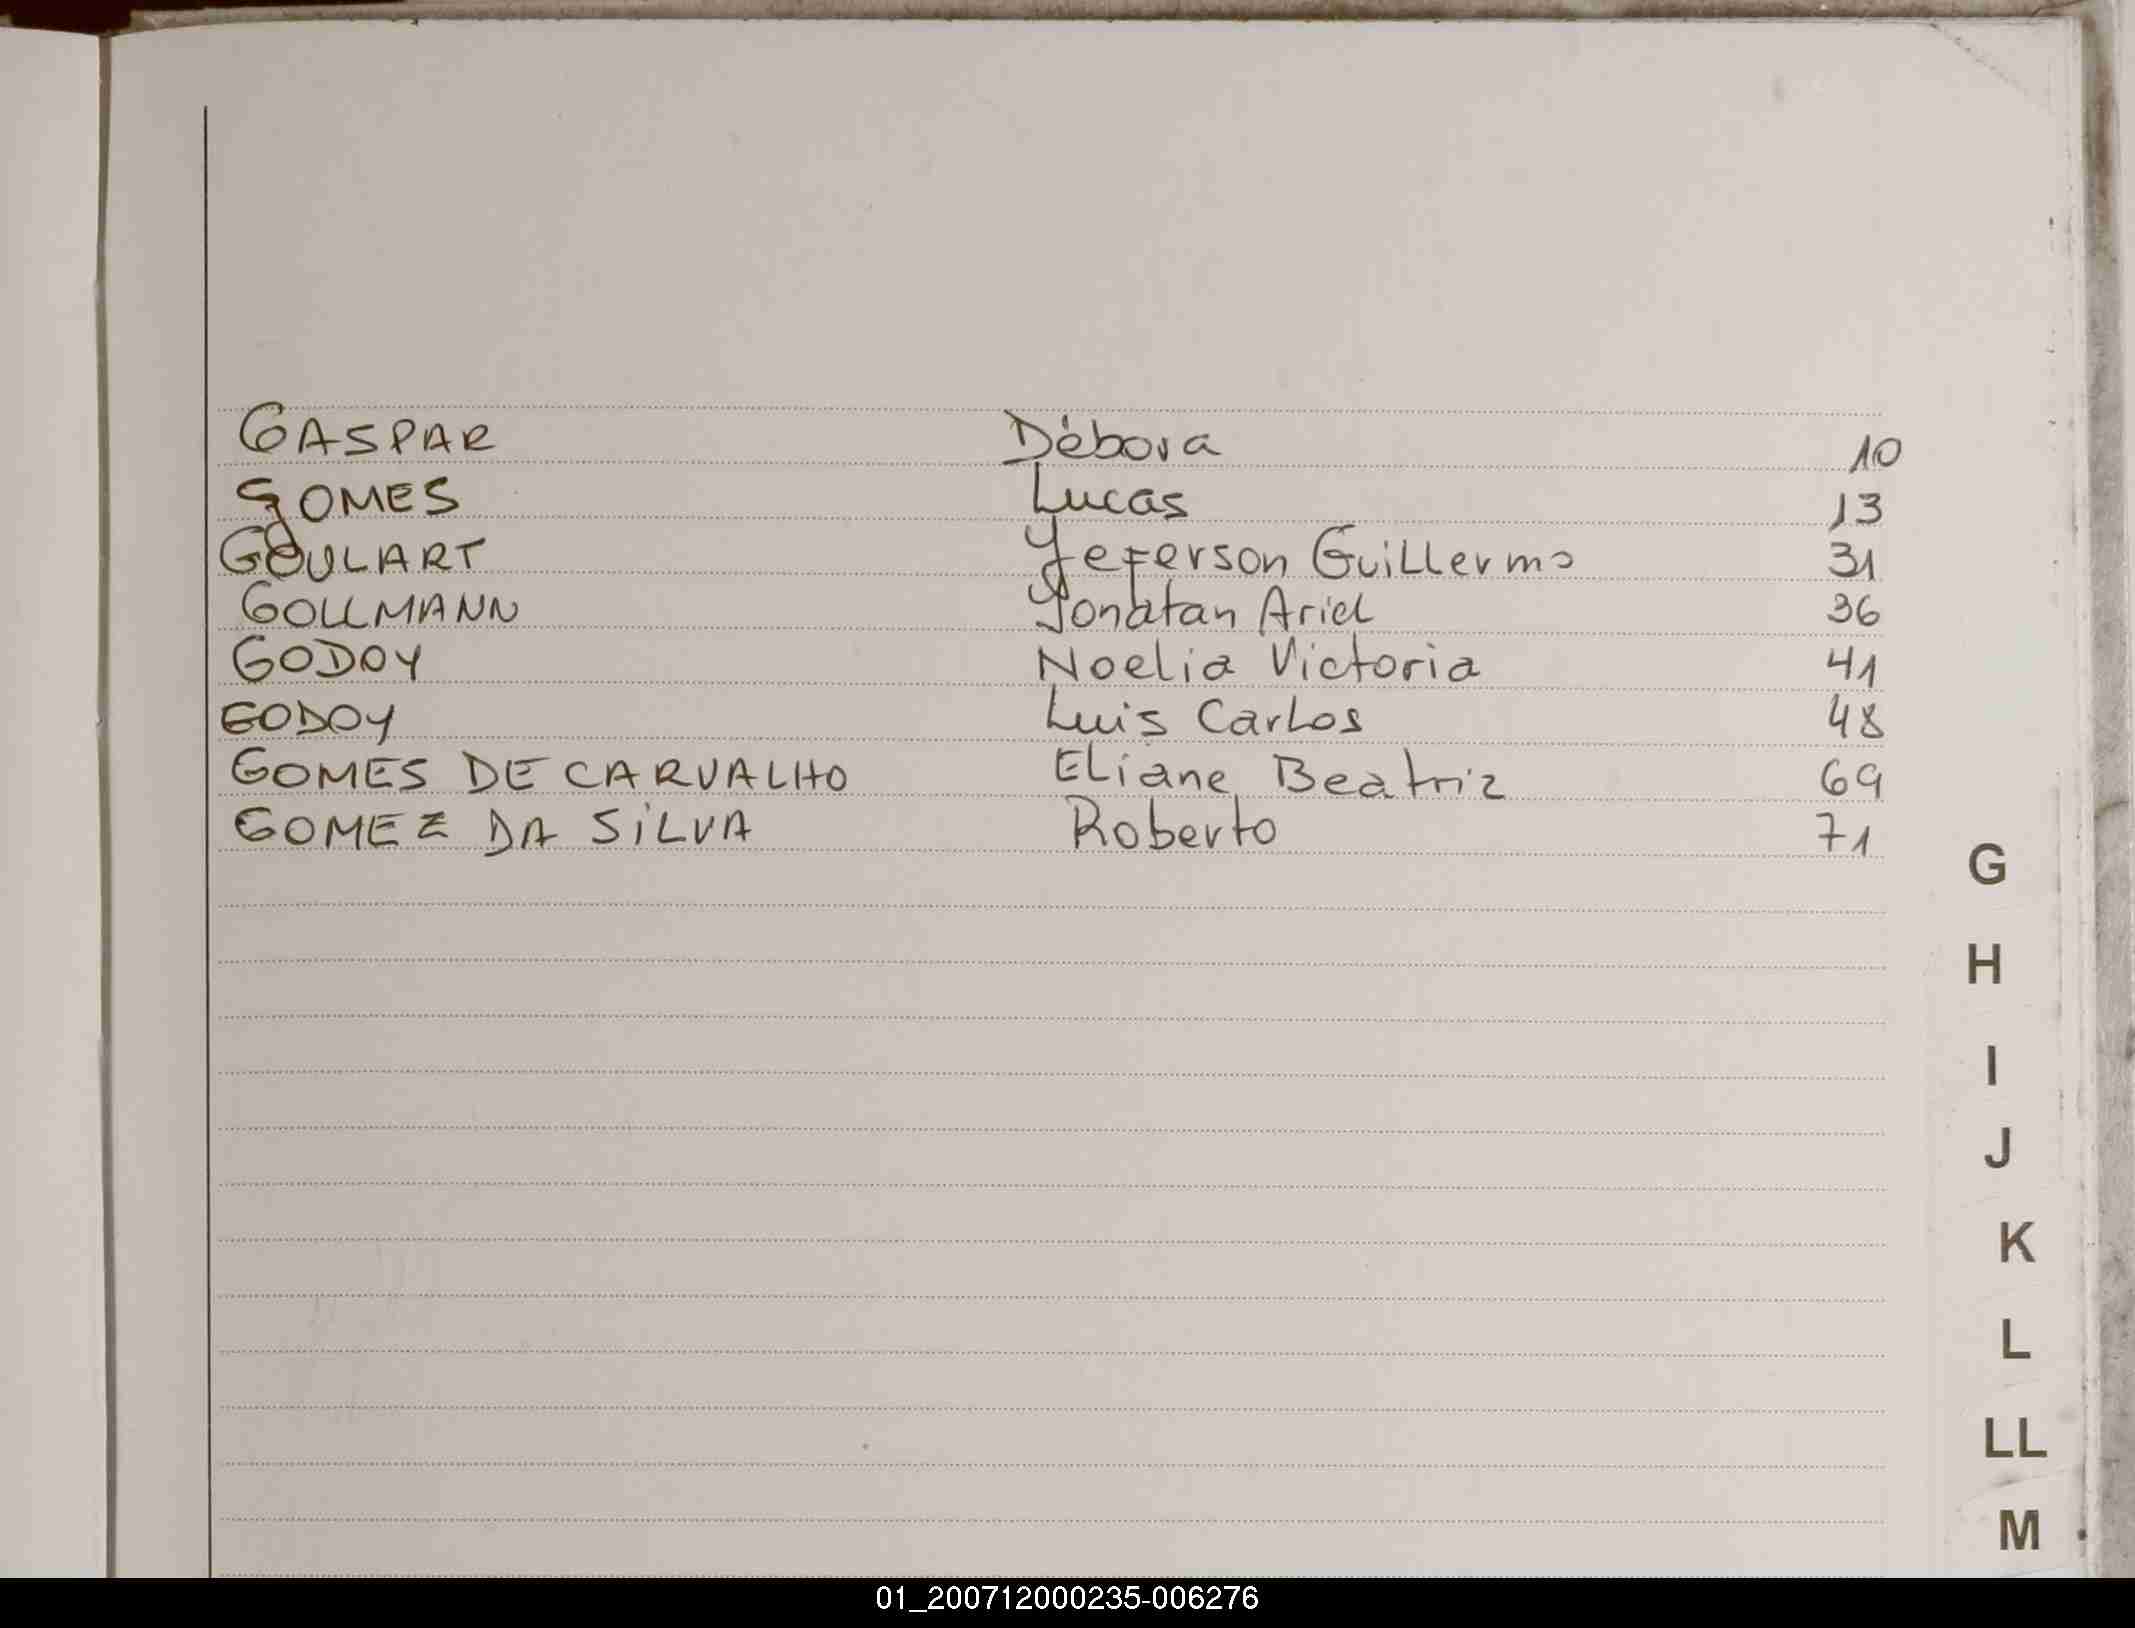 GASPAR Débora 10
GOMES Lucas 13
GOULART Yeferson Guillermo 31
GOLLMANN Yonatan Ariel 36
GODOY Noelia Victoria 41
GODOY Luis Carlos 48
GOMES DE CARVALHO Eliane Beatriz 69
GOMEZ DA SILVA Roberto 71
G
H
I
J
K
L
LL
M
01_200712000235-006276